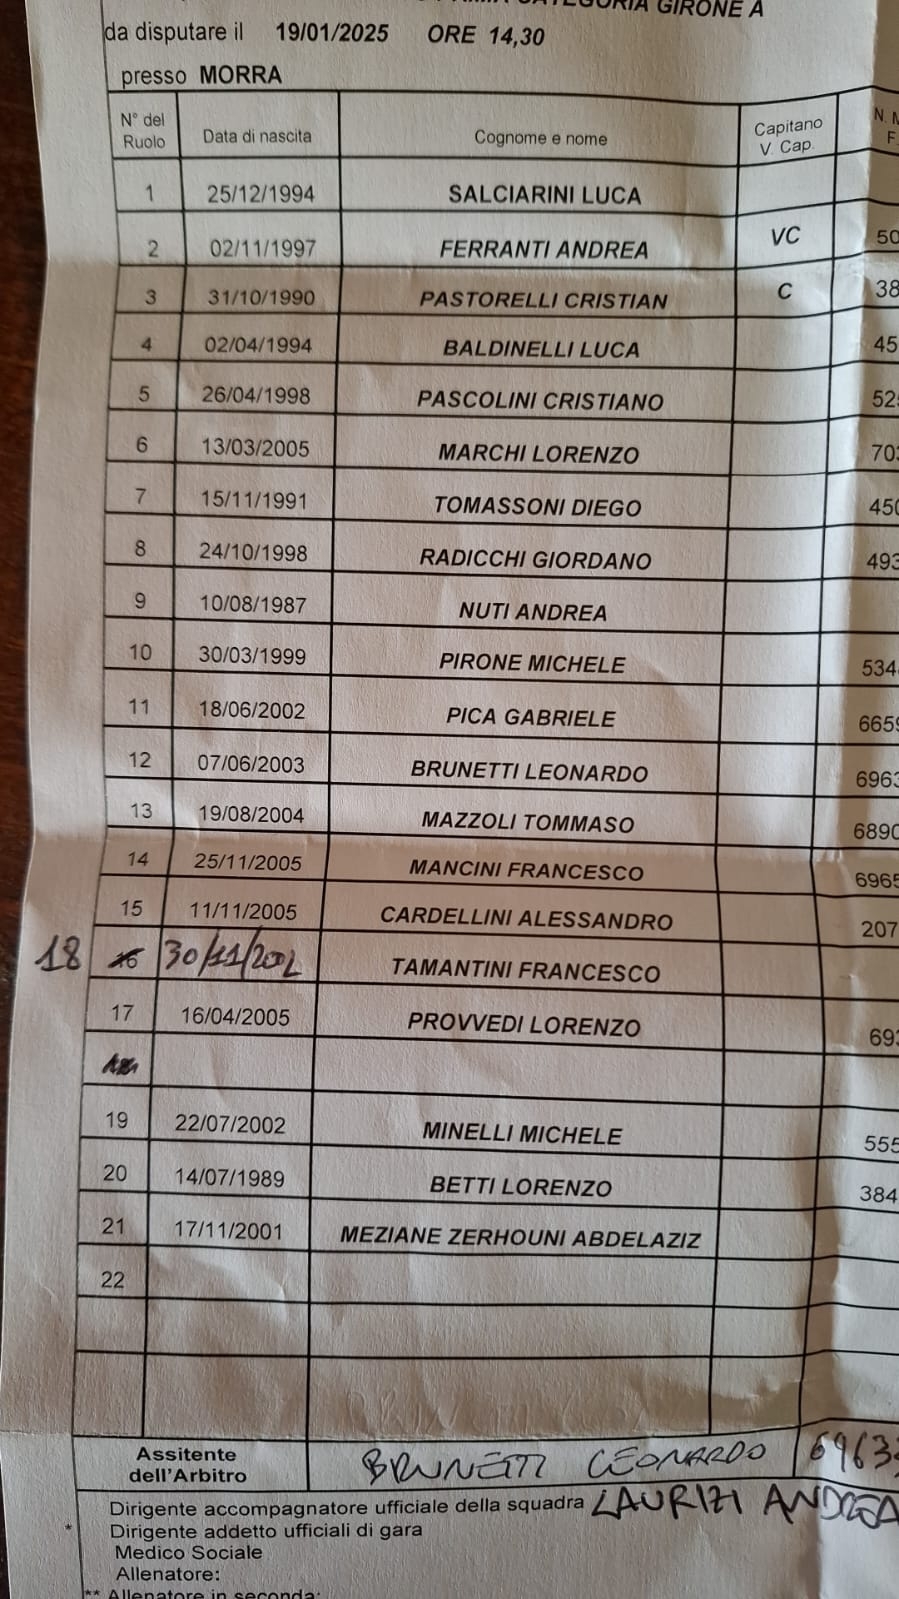 CATEGORIA GIRONE A
da disputare il 19/01/2025 ORE 14,30
presso MORRA
N° del Ruolo Data di nascita Cognome e nome Capitano V. Cap. N. F.
1 25/12/1994 SALCIARINI LUCA
2 02/11/1997 FERRANTI ANDREA VC 50
3 31/10/1990 PASTORELLI CRISTIAN C 38
4 02/04/1994 BALDINELLI LUCA 45
5 26/04/1998 PASCOLINI CRISTIANO 52
6 13/03/2005 MARCHI LORENZO 70
7 15/11/1991 TOMASSONI DIEGO 450
8 24/10/1998 RADICCHI GIORDANO 493
9 10/08/1987 NUTI ANDREA
10 30/03/1999 PIRONE MICHELE 534
11 18/06/2002 PICA GABRIELE 6659
12 07/06/2003 BRUNETTI LEONARDO 6963
13 19/08/2004 MAZZOLI TOMMASO 6890
14 25/11/2005 MANCINI FRANCESCO 6965
15 11/11/2005 CARDELLINI ALESSANDRO 207
18 16 30/11/2002 TAMANTINI FRANCESCO
17 16/04/2005 PROVVEDI LORENZO 693
19 22/07/2002 MINELLI MICHELE 555
20 14/07/1989 BETTI LORENZO 384
21 17/11/2001 MEZIANE ZERHOUNI ABDELAZIZ
22
Assitente dell'Arbitro BRUNETTI LEONARDO 6963
Dirigente accompagnatore ufficiale della squadra LAURIZI ANDREA
* Dirigente addetto ufficiali di gara
Medico Sociale
Allenatore:
** Allenatore in seconda: